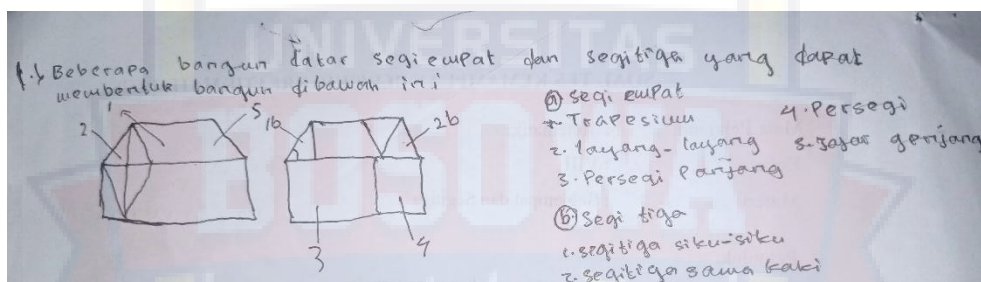 1.) Beberapa bangun datar segi empat dan segitiga yang dapat
membentuk bangun dibawah ini
1
2
5
1b
2b
3
4
a) segi empat
1. Trapesium
2. layang-layang
3. Persegi Panjang
4. Persegi
5. Jajar genjang
b) segi tiga
1. segitiga siku-siku
2. segitiga sama kaki
UNIVERSITAS
BOSOWA